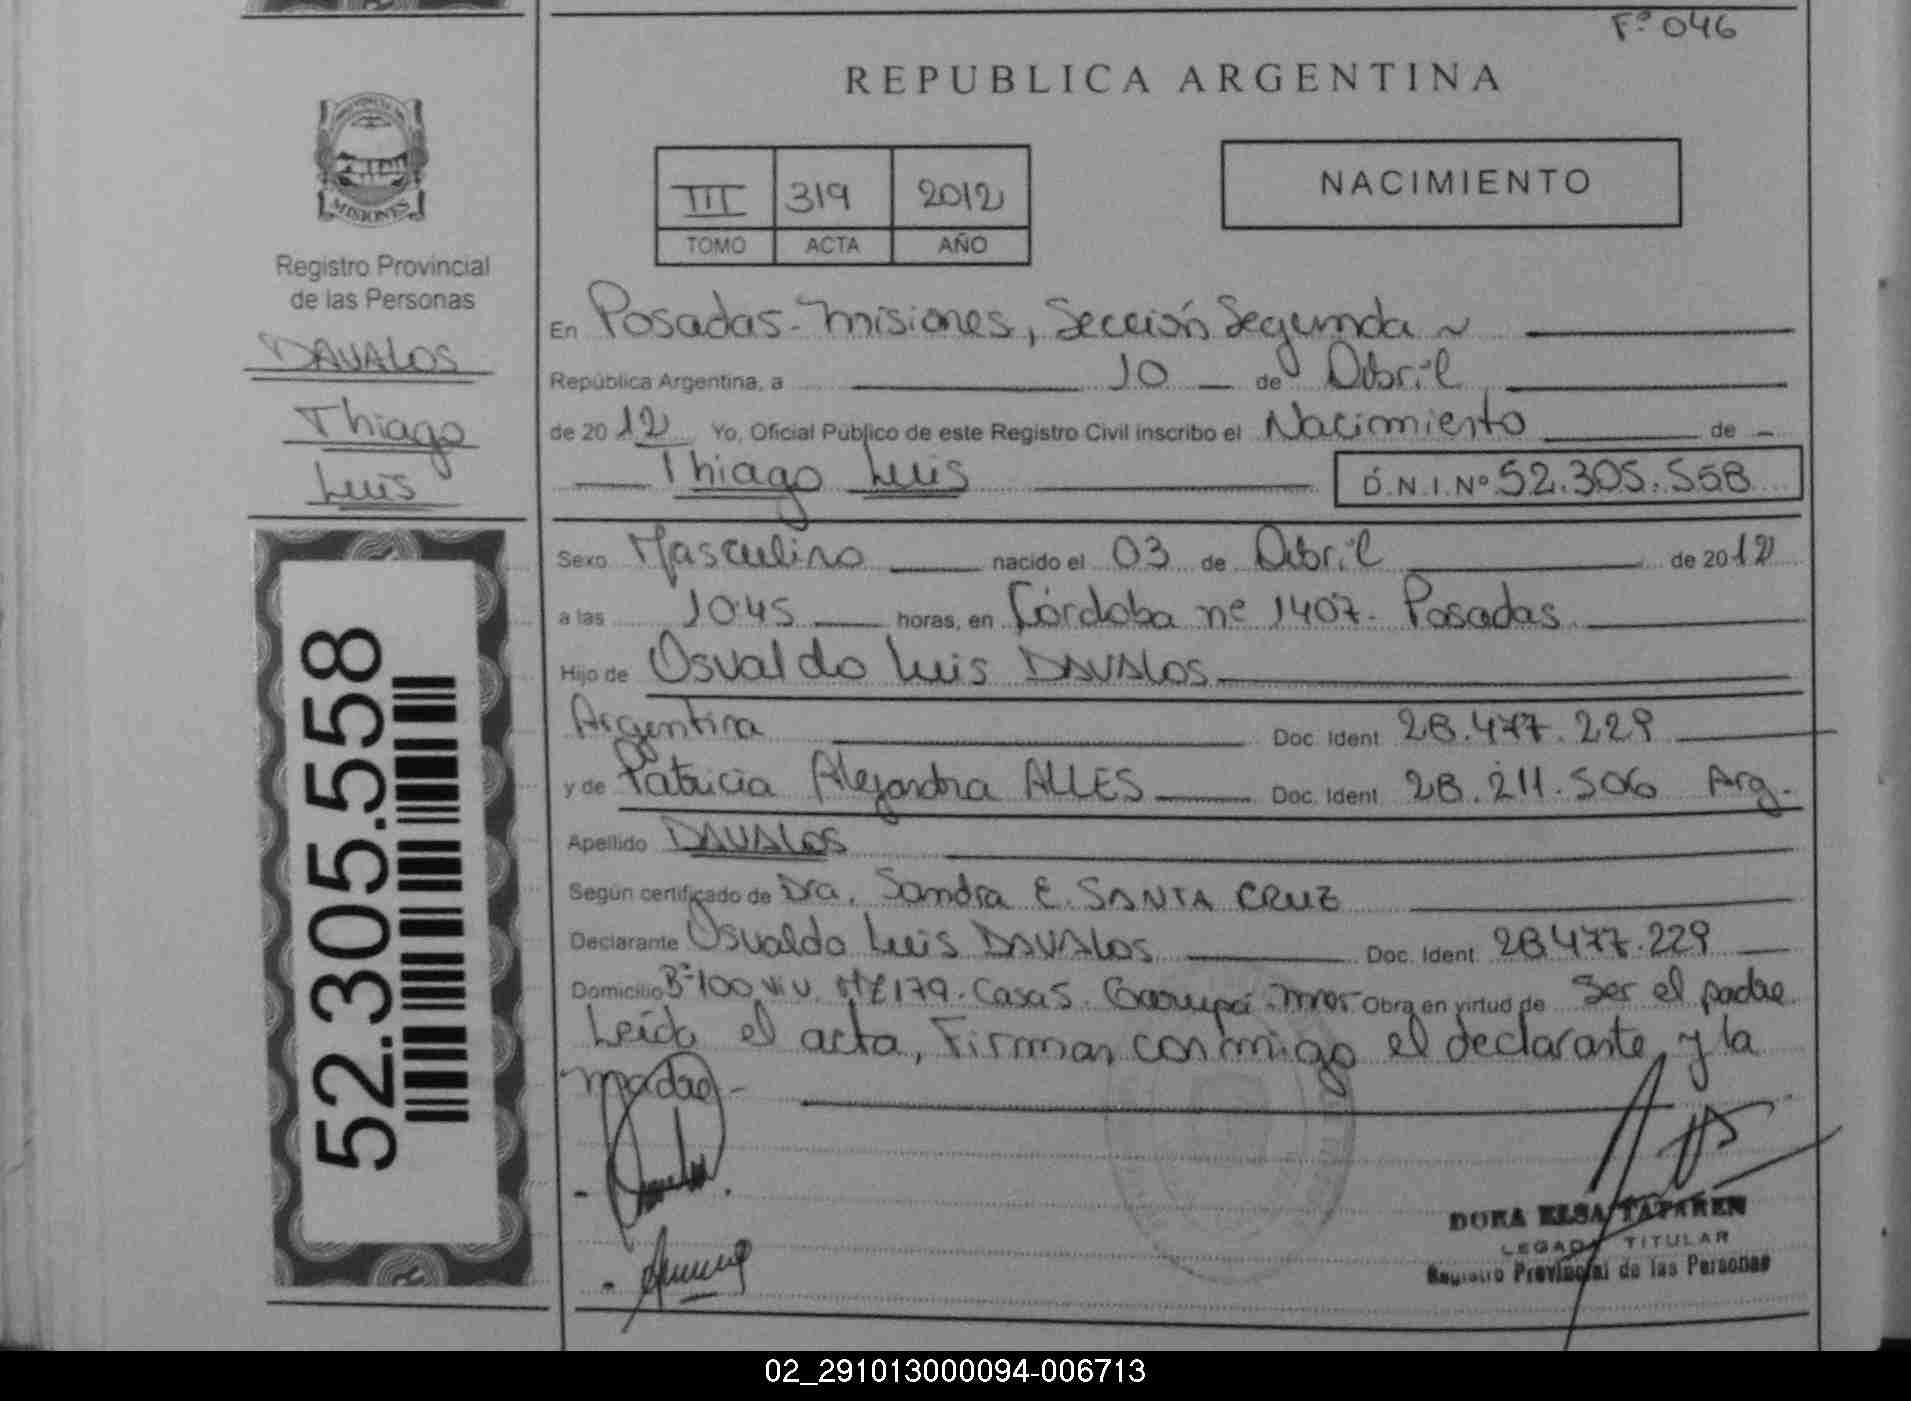 Fº 046
REPUBLICA ARGENTINA
PROVINCIA DE
MISIONES
Registro Provincial
de las Personas
DAVALOS
Thiago
Luis
52.305.558
III 319 2012
TOMO ACTA AÑO
NACIMIENTO
En Posadas - Misiones, Sección Segunda ~
República Argentina, a 10 de Abril
de 2012 Yo, Oficial Público de este Registro Civil inscribo el Nacimiento de
Thiago Luis D.N.I.Nº 52.305.558
Sexo Masculino nacido el 03 de Abril de 2012
a las 10:45 horas, en Córdoba nº 1407 - Posadas
Hijo de Osvaldo Luis DAVALOS
Argentina Doc. Ident 28.477.229
y de Patricia Alejandra ALLES Doc. Ident 28.211.506 Arg.
Apellido DAVALOS
Según certificado de Dra. Sandra E. SANTA CRUZ
Declarante Osvaldo Luis DAVALOS Doc. Ident. 28.477.229
Domicilio Bº 100 viv. Mz 179 - Casa 5 - Garupá - Mnes Obra en virtud de Ser el padre
Leída el acta, Firman conmigo el declarante y la
madre -
DORA ELSA
LEGADA TITULAR
Registro Provincial de las Personas
02_291013000094-006713